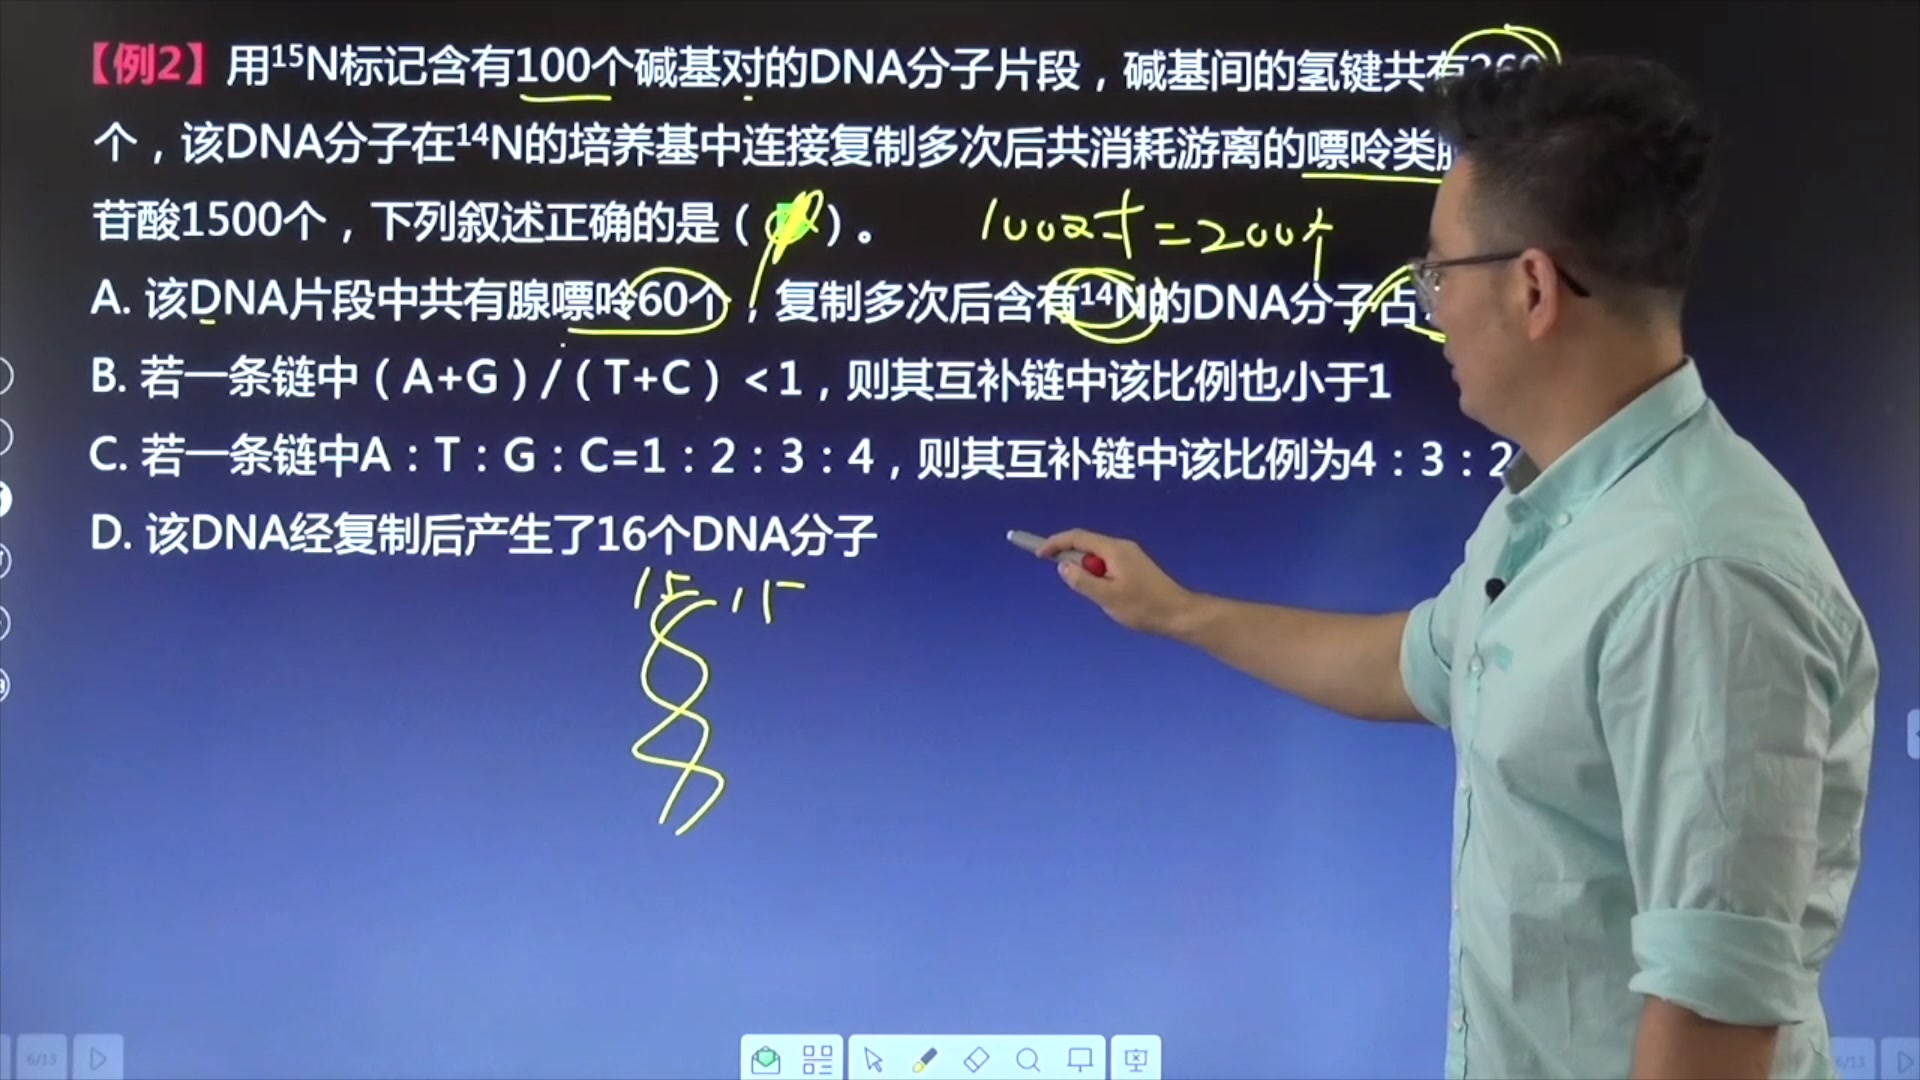 【例2】用¹⁵N标记含有100个碱基对的DNA分子片段，碱基间的氢键共有260
个，该DNA分子在¹⁴N的培养基中连接复制多次后共消耗游离的嘌呤类
苷酸1500个，下列叙述正确的是（ ）。
100对=200个
A. 该DNA片段中共有腺嘌呤60个，复制多次后含有¹⁴N的DNA分子占
B. 若一条链中（A+G）/（T+C）<1，则其互补链中该比例也小于1
C. 若一条链中A：T：G：C=1：2：3：4，则其互补链中该比例为4：3：2
D. 该DNA经复制后产生了16个DNA分子
15 15
6/13
6/13